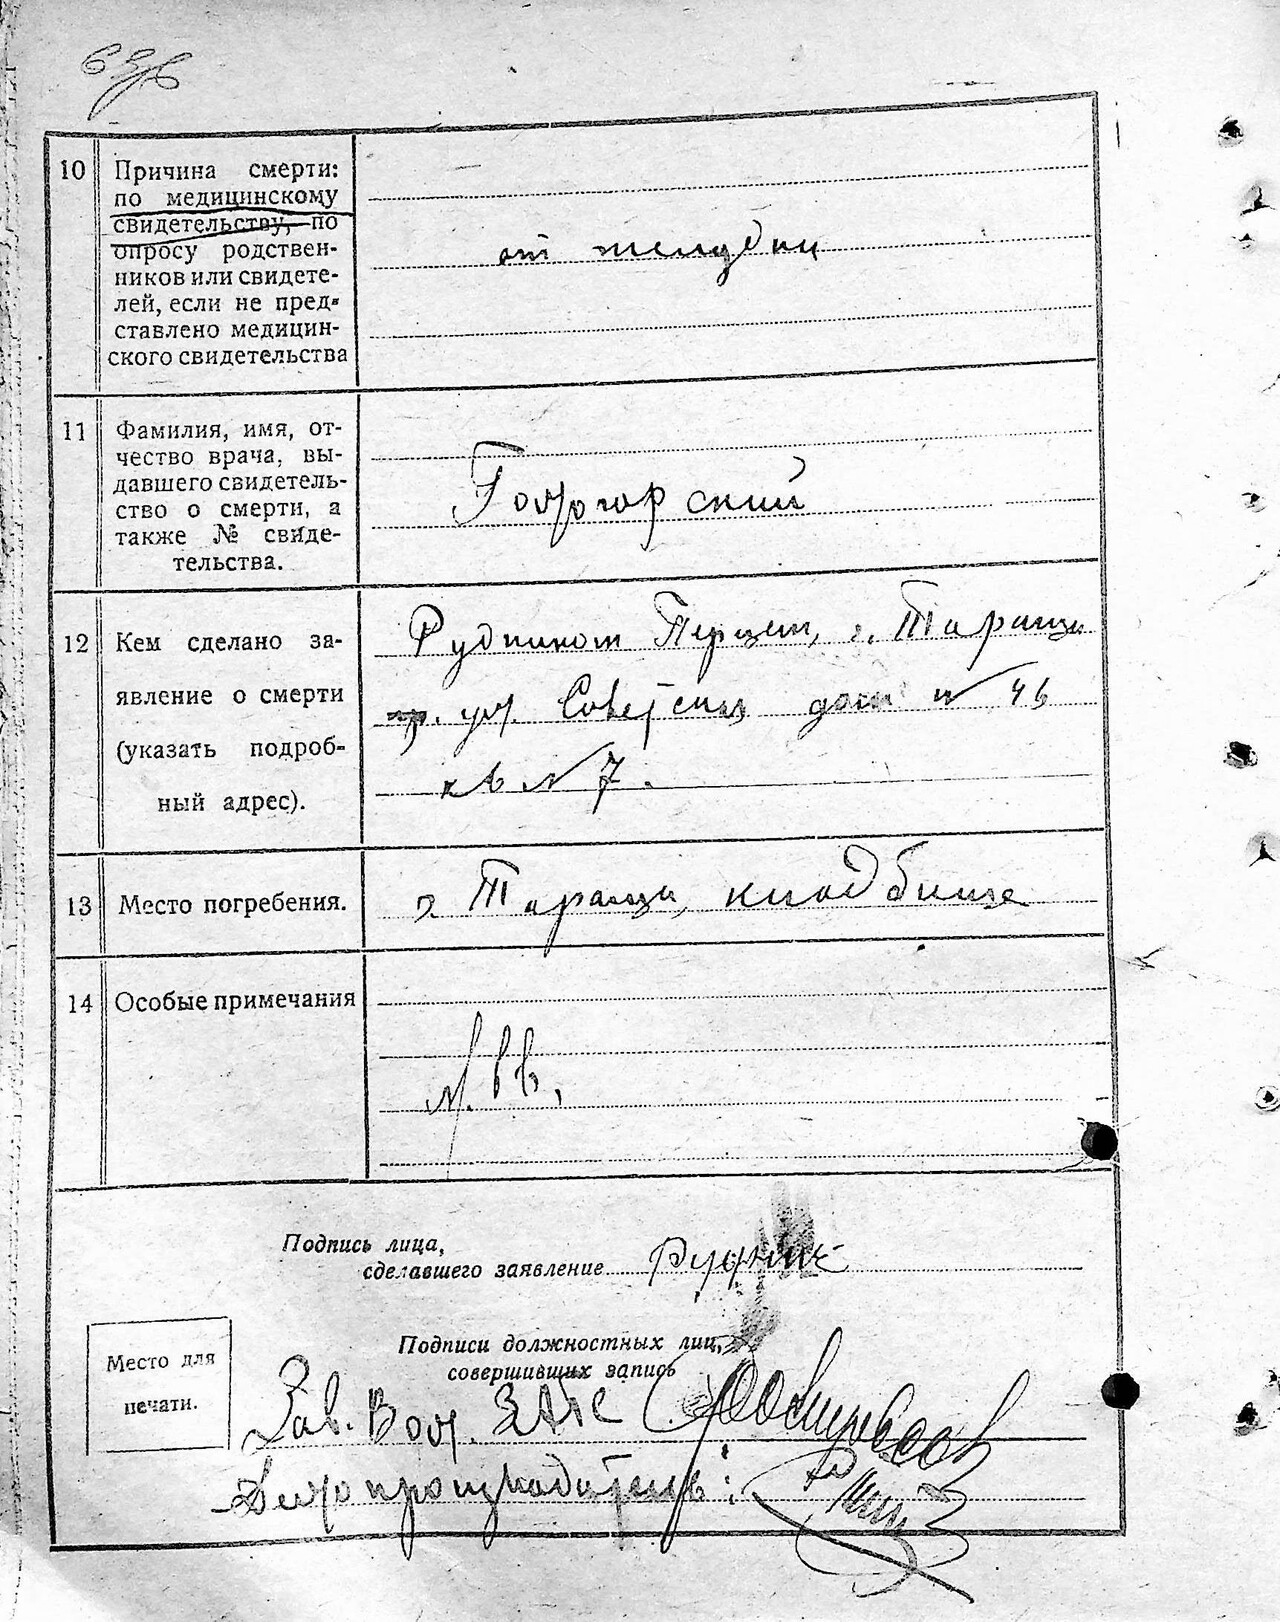 10 Причина смерти:
по медицинскому
свидетельству, по
опросу родствен-
ников или свидете-
лей, если не пред-
ставлено медицин-
ского свидетельства
от желудка
11 Фамилия, имя, от-
чество врача, вы-
давшего свидетель-
ство о смерти, а
также № свиде-
тельства.
12 Кем сделано за-
явление о смерти
(указать подроб-
ный адрес).
Рудником Перцем, г. Таращи
ул. Советская дом № 46
кв № 7.
13 Место погребения.
г. Таращи, кладбище
14 Особые примечания
Подпись лица,
сделавшего заявление Рудник
Подписи должностных лиц,
совершивших запись
Место для
печати.
Зав.
Делопроизводитель: